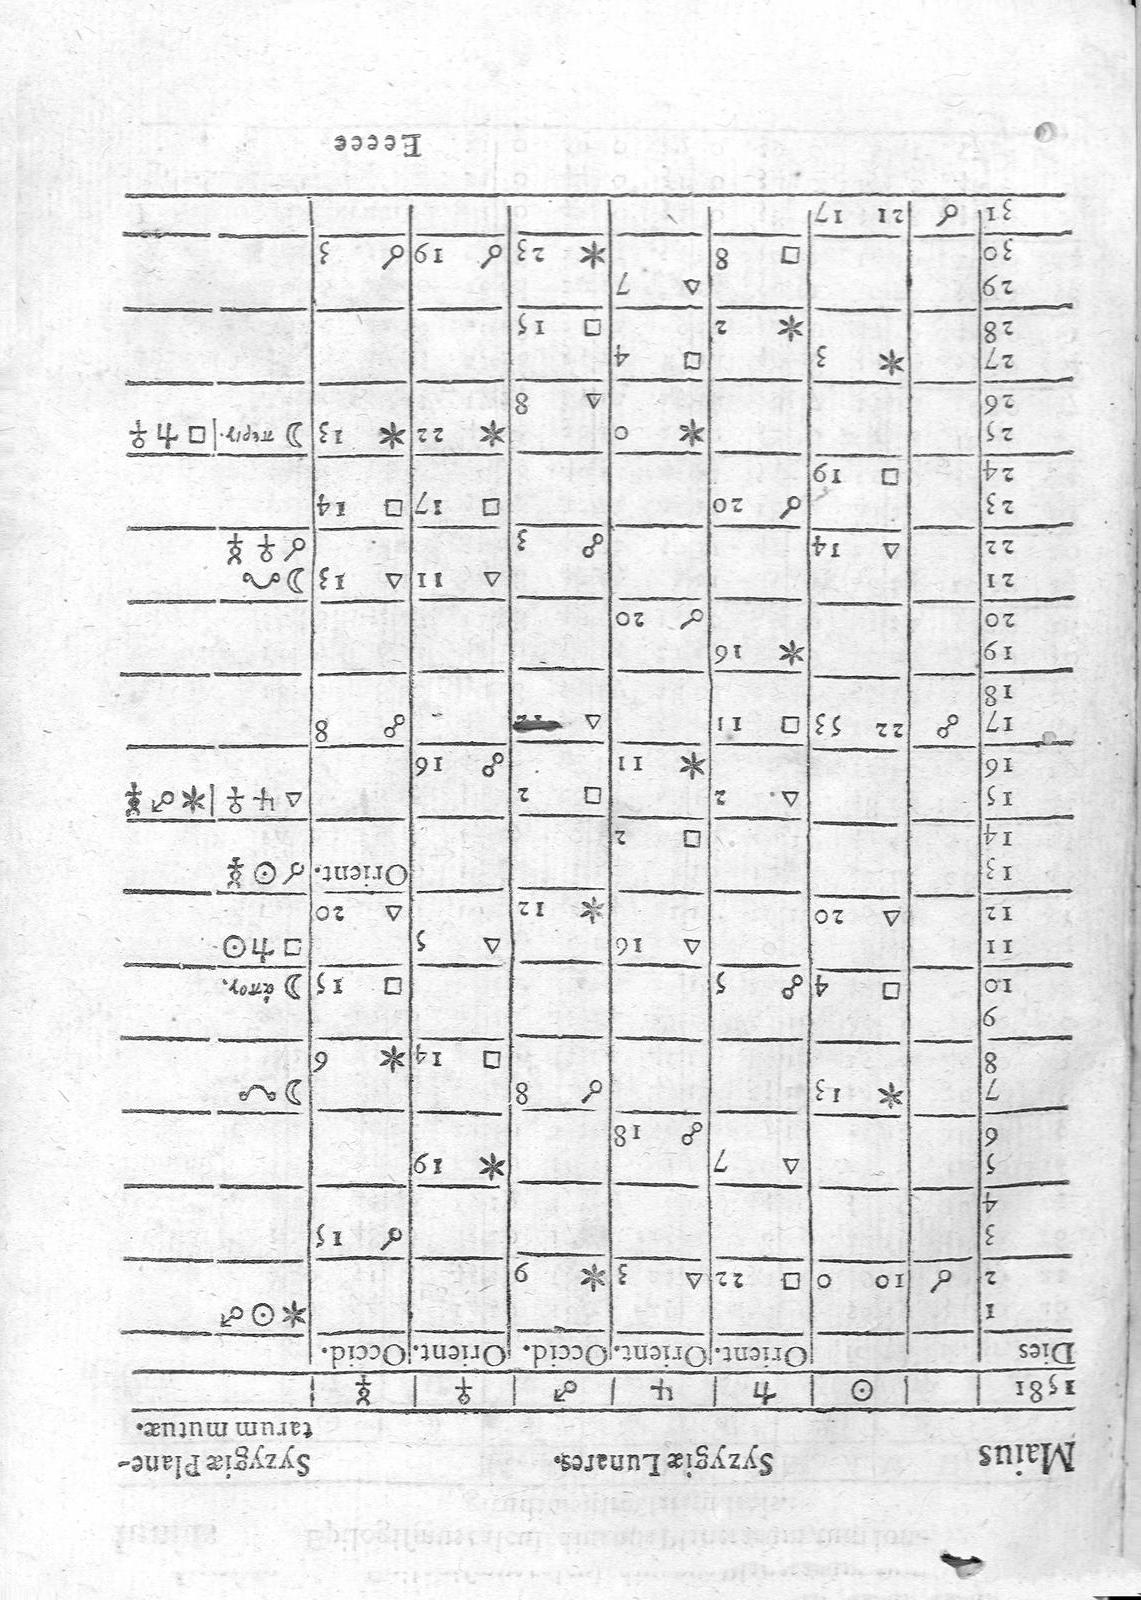 Maius Syzygiæ Lunares. Syzygiæ Plane-
tarum mutuæ.
1581 ☉ ♄ ♃ ♂ ♀ ☿
Dies Orient. Orient. Occid. Orient. Occid.
1 ⚹ ☉ ♂
2 ☌ 10 0 □ 22 △ 3 ⚹ 9
3 ☌ 15
4
5 △ 7 ⚹ 19
6 ☍ 18
7 ⚹ 13 ☌ 8 ☽
8 □ 14 ⚹ 6
9
10 □ 4 ☍ 5 □ 15 ☽ ἀπογ.
11 △ 16 △ 5 □ ♄ ☉
12 △ 20 ⚹ 12 △ 20
13 Orient. ☌ ☉ ☿
14 □ 2
15 △ 2 □ 2 △ ♃ ♀ | ⚹ ♂ ☿
16 ⚹ 11 ☍ 16
17 ☍ 22 53 □ 11 △ ☍ 8
18
19 ⚹ 16
20 ☌ 20
21 △ 11 △ 13 ☽
22 △ 14 ☍ 3 ☌ ♀ ☿
23 ☌ 20 □ 17 □ 14
24 □ 19
25 ⚹ 0 ⚹ 22 ⚹ 13 ☽ περιγ. | □ ♄ ♀
26 △ 8
27 ⚹ 3 □ 4
28 ⚹ 2 □ 15
29 △ 7
30 □ 8 ⚹ 23 ☌ 19 ☌ 3
31 ☌ 21 17
Eeeee